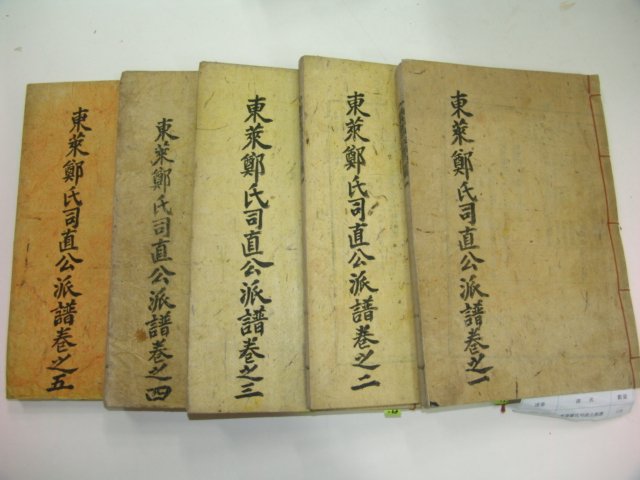 東萊鄭氏司直公派譜卷之一
東萊鄭氏司直公派譜卷之二
東萊鄭氏司直公派譜卷之三
東萊鄭氏司直公派譜卷之四
東萊鄭氏司直公派譜卷之五